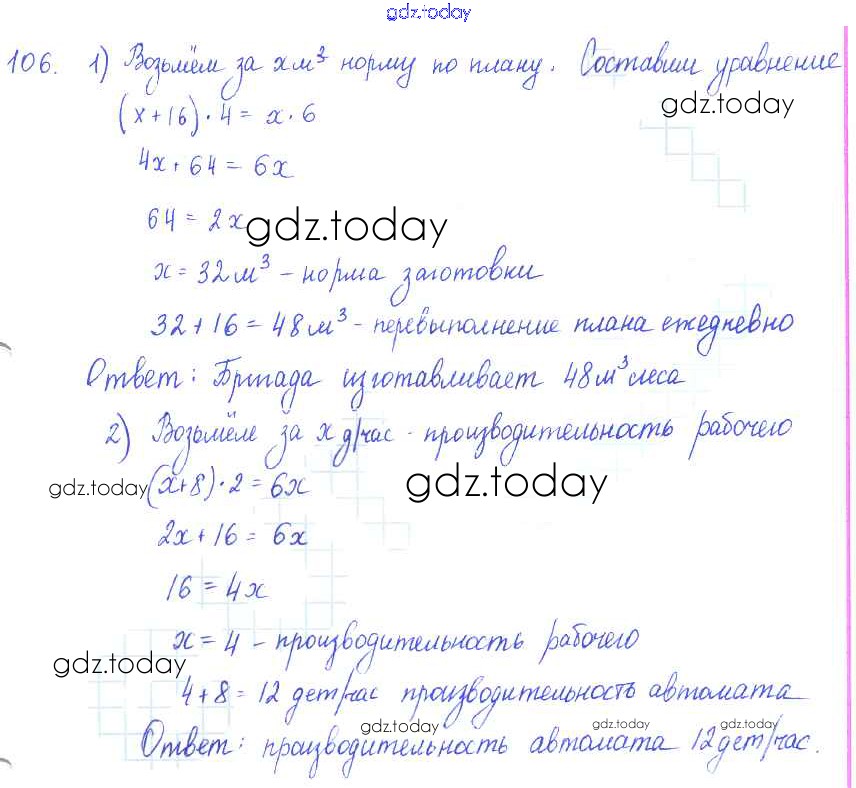 gdz.today
106. 1) Возьмём за х м³ норму по плану. Составим уравнение
gdz.today
(х+16)·4 = х·6
4х+64 = 6х
64 = 2х
gdz.today
х = 32 м³ - норма заготовки
32+16 = 48 м³ - перевыполнение плана ежедневно
Ответ: Бригада изготавливает 48 м³ леса
2) Возьмём за х д/час - производительность рабочего
gdz.today (х+8)·2 = 6х gdz.today
2х+16 = 6х
16 = 4х
х = 4 - производительность рабочего
gdz.today
4+8 = 12 дет/час производительность автомата
gdz.today gdz.today gdz.today
Ответ: производительность автомата 12 дет/час.